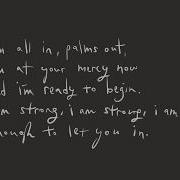 m all in, palms out,
m at your mercy now
d i'm ready to begin.
m strong, i am strong, i am
nough to let you in.